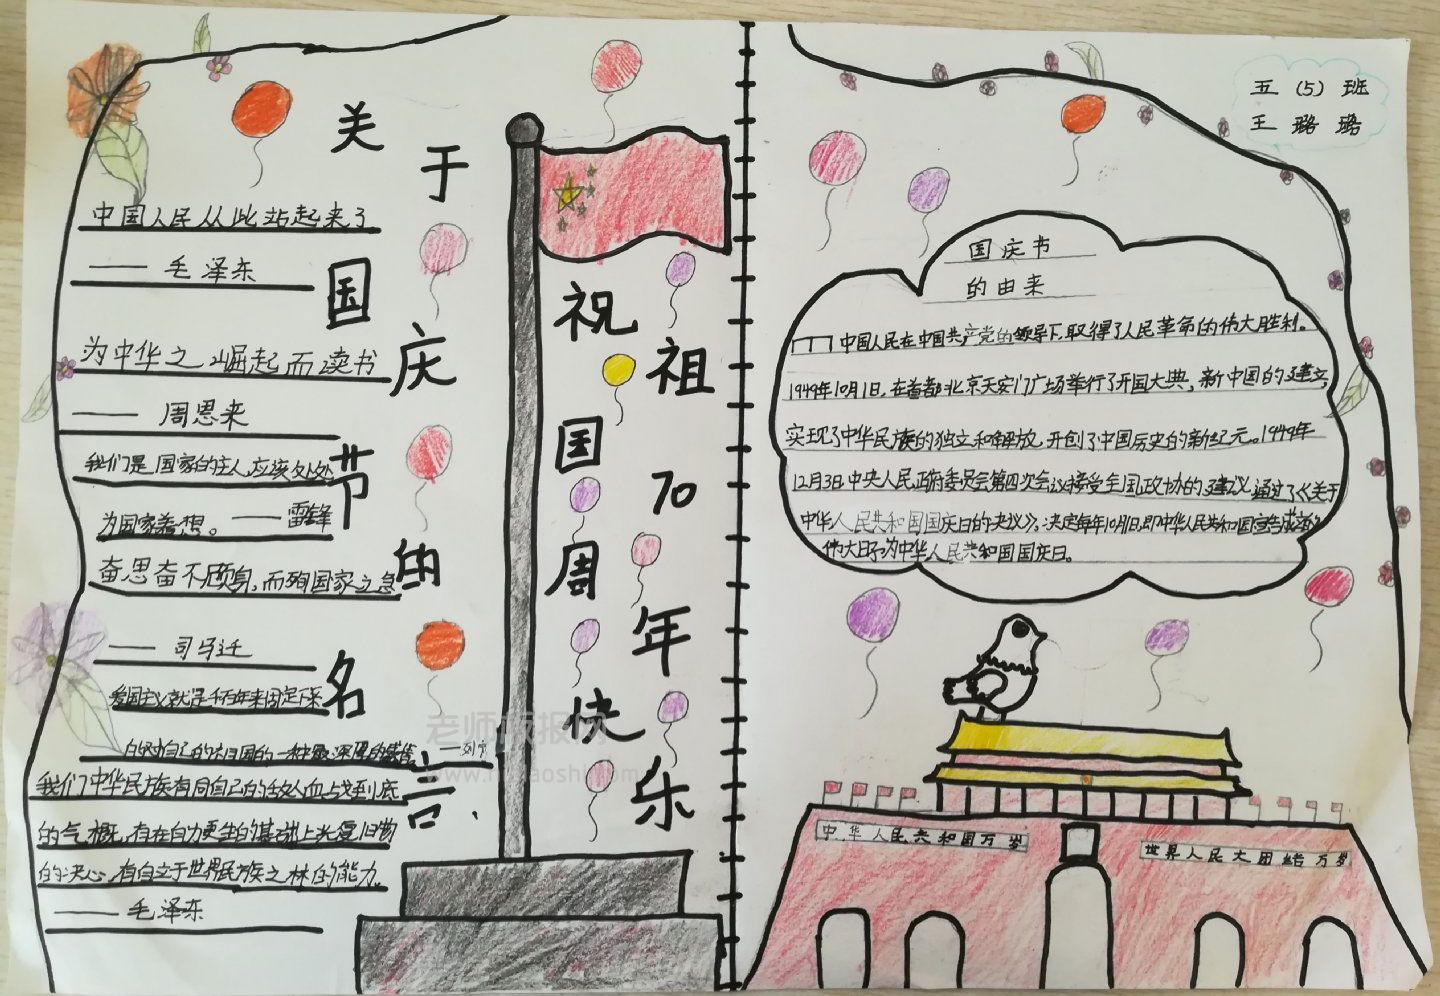 关于国庆节的名言
中国人民从此站起来了
—— 毛泽东
为中华之崛起而读书
—— 周恩来
我们是国家的主人,应该处处
为国家着想。——雷锋
奋思奋不顾身,而殉国家之急
—— 司马迁
爱国主义就是千百年来固定下来
的对自己的祖国的一种最深厚的感情 ——列宁
我们中华民族有同自己的敌人血战到底
的气概,有在自力更生的基础上光复旧物
的决心,有自立于世界民族之林的能力。
—— 毛泽东
祝祖国70周年快乐
老师板报网
五(5)班
王璐璐
国庆节
的由来
中国人民在中国共产党的领导下,取得了人民革命的伟大胜利。
1949年10月1日,在首都北京天安门广场举行了开国大典,新中国的建立,
实现了中华民族的独立和解放,开创了中国历史的新纪元。1949年
12月3日中央人民政府委员会第四次会议接受全国政协的建议,通过了《关于
中华人民共和国国庆日的决议》。决定每年10月1日,即中华人民共和国宣告成立的
伟大日子为中华人民共和国国庆日。
中华人民共和国万岁
世界人民大团结万岁